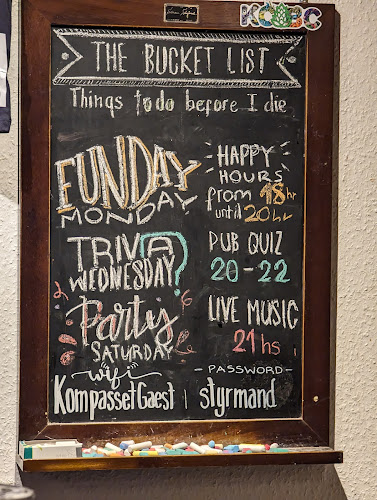 THE BUCKET LIST
Things to do before I die
FUNDAY
MONDAY
HAPPY
HOURS
from 18hr
until 20hr
TRIVA
WEDNESDAY?
PUB QUIZ
20 - 22
Party
SATURDAY
LIVE MUSIC
21hs
wifi
KompassetGaest
- PASSWORD -
styrmand